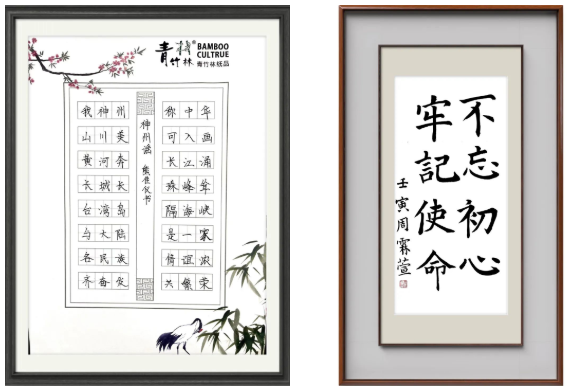 青竹林®
BAMBOO
CULTRUE
青竹林纸品
神州谣
我神州 称中华
山川美 可入画
黄河奔 长江涌
长城长 珠峰耸
台湾岛 隔海峡
与大陆 是一家
各民族 情谊浓
齐奋发 共繁荣
不忘初心
牢記使命
壬寅周霖萱